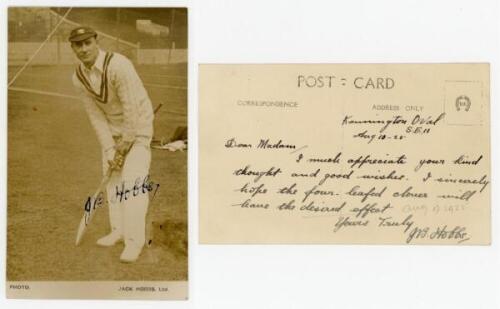 J.B. Hobbs
PHOTO.
JACK HOBBS, Ltd.
POST = CARD
CORRESPONDENCE
ADDRESS ONLY
Kennington Oval
S.E.11
Aug 18-25
Dear Madam,
I much appreciate your kind
thought and good wishes. I sincerely
hope the four-leafed clover will
have the desired effect
Yours Truly
J.B. Hobbs